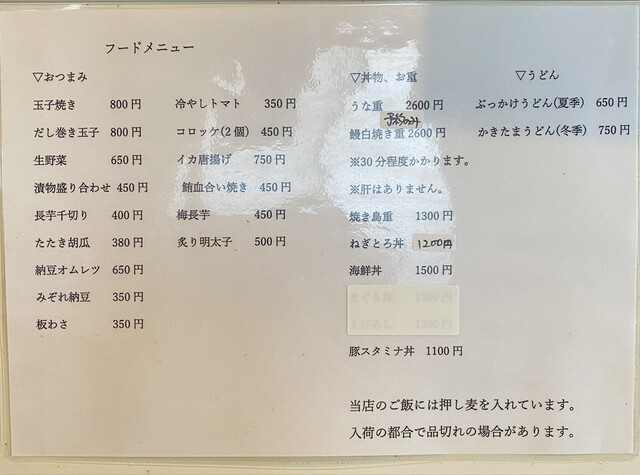 フードメニュー
▽おつまみ
玉子焼き 800円
だし巻き玉子 800円
生野菜 650円
漬物盛り合わせ 450円
長芋千切り 400円
たたき胡瓜 380円
納豆オムレツ 650円
みぞれ納豆 350円
板わさ 350円
冷やしトマト 350円
コロッケ(2個) 450円
イカ唐揚げ 750円
鮪血合い焼き 450円
梅長芋 450円
炙り明太子 500円
▽丼物、お重
うな重 2600円
予約のみ
鰻白焼き重 2600円
※30分程度かかります。
※肝はありません。
焼き鳥重 1300円
ねぎとろ丼 1200円
海鮮丼 1500円
まぐろ丼 1300円
えびめし 1300円
豚スタミナ丼 1100円
▽うどん
ぶっかけうどん(夏季) 650円
かきたまうどん(冬季) 750円
当店のご飯には押し麦を入れています。
入荷の都合で品切れの場合があります。